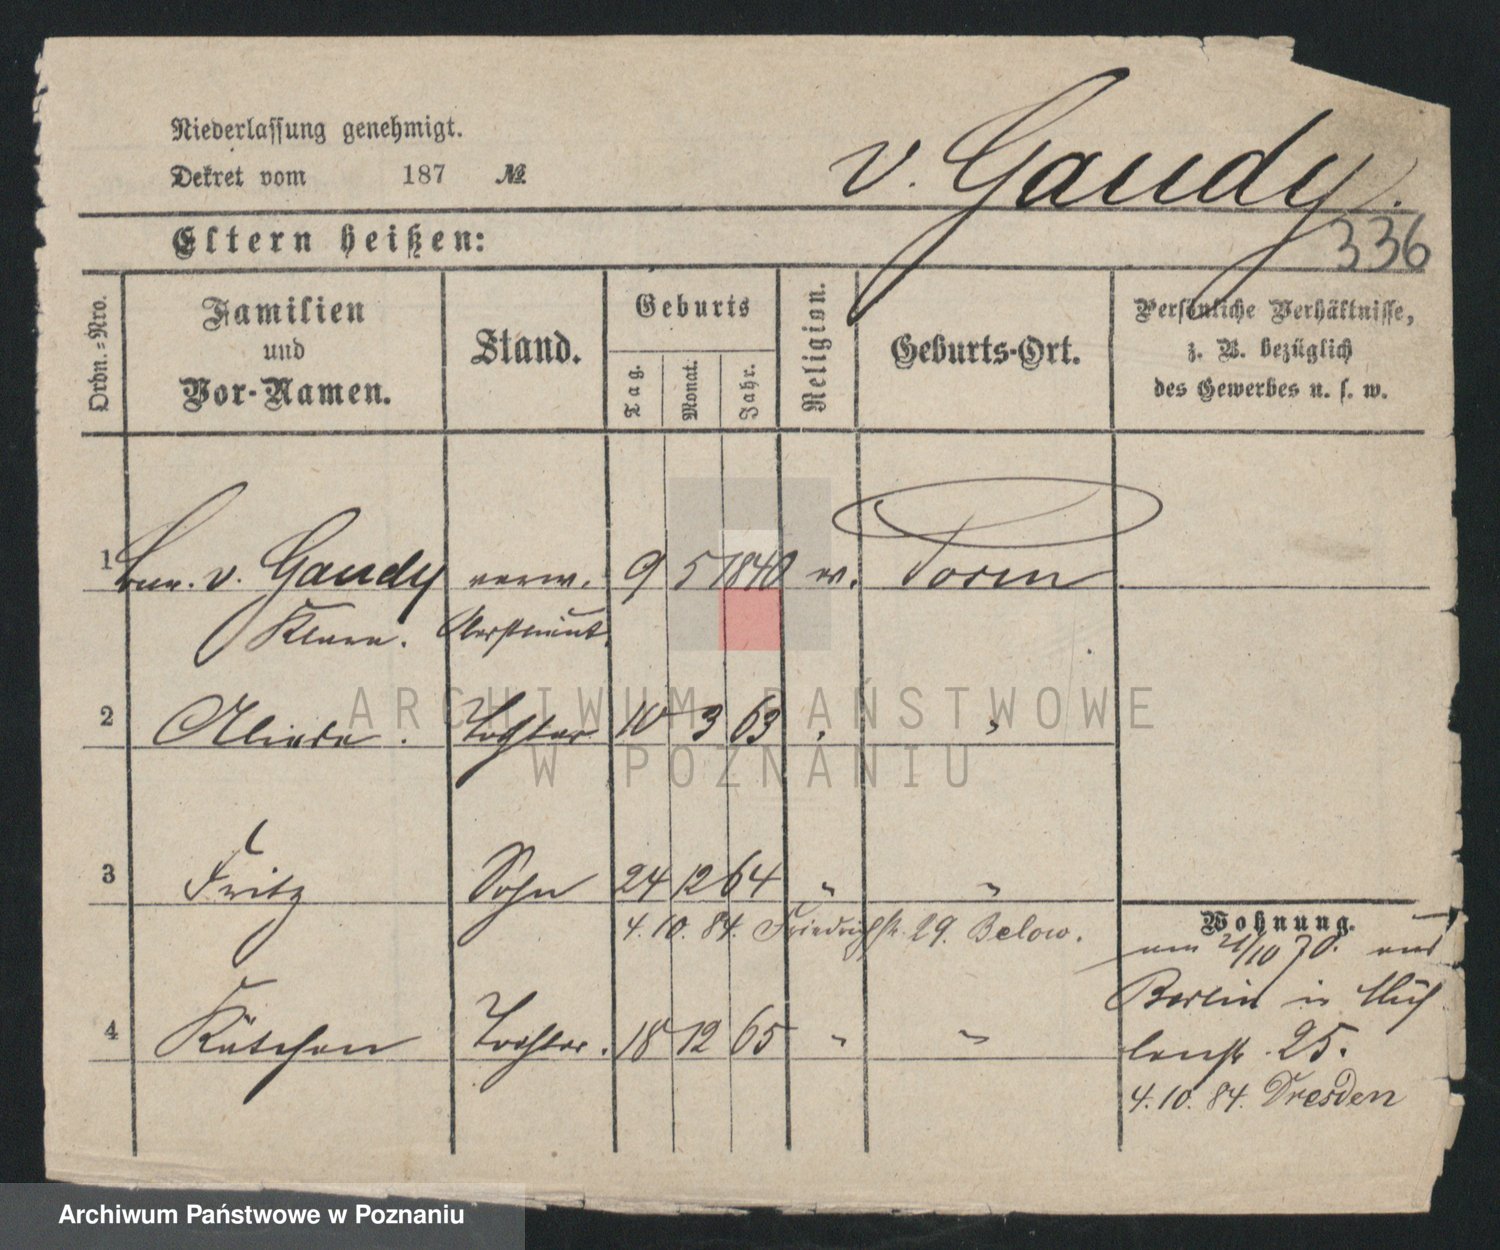 Niederlassung genehmigt.
Dekret vom 187 №
v. Gaudy.
336
Eltern heißen:
Ordn.-Nro.
Familien
und
Vor-Namen.
Stand.
Geburts
Tag.
Monat.
Jahr.
Religion.
Geburts-Ort.
Persönliche Verhältnisse,
z. B. bezüglich
des Gewerbes u. s. w.
1 v. Gaudy verw. 9 5 1840
Klara.
2 Tochter 10 3 63 "
3 Fritz Sohn 24 12 64 " "
4. 10. 84. Friedrichstr. 29. Below.
Wohnung.
am 21/10 70. aus
Berlin in Müh
lenstr. 25.
4 Kätchen Tochter. 18 12 65 " "
4. 10. 84. Dresden
ARCHIWUM PAŃSTWOWE
W POZNANIU
Archiwum Państwowe w Poznaniu